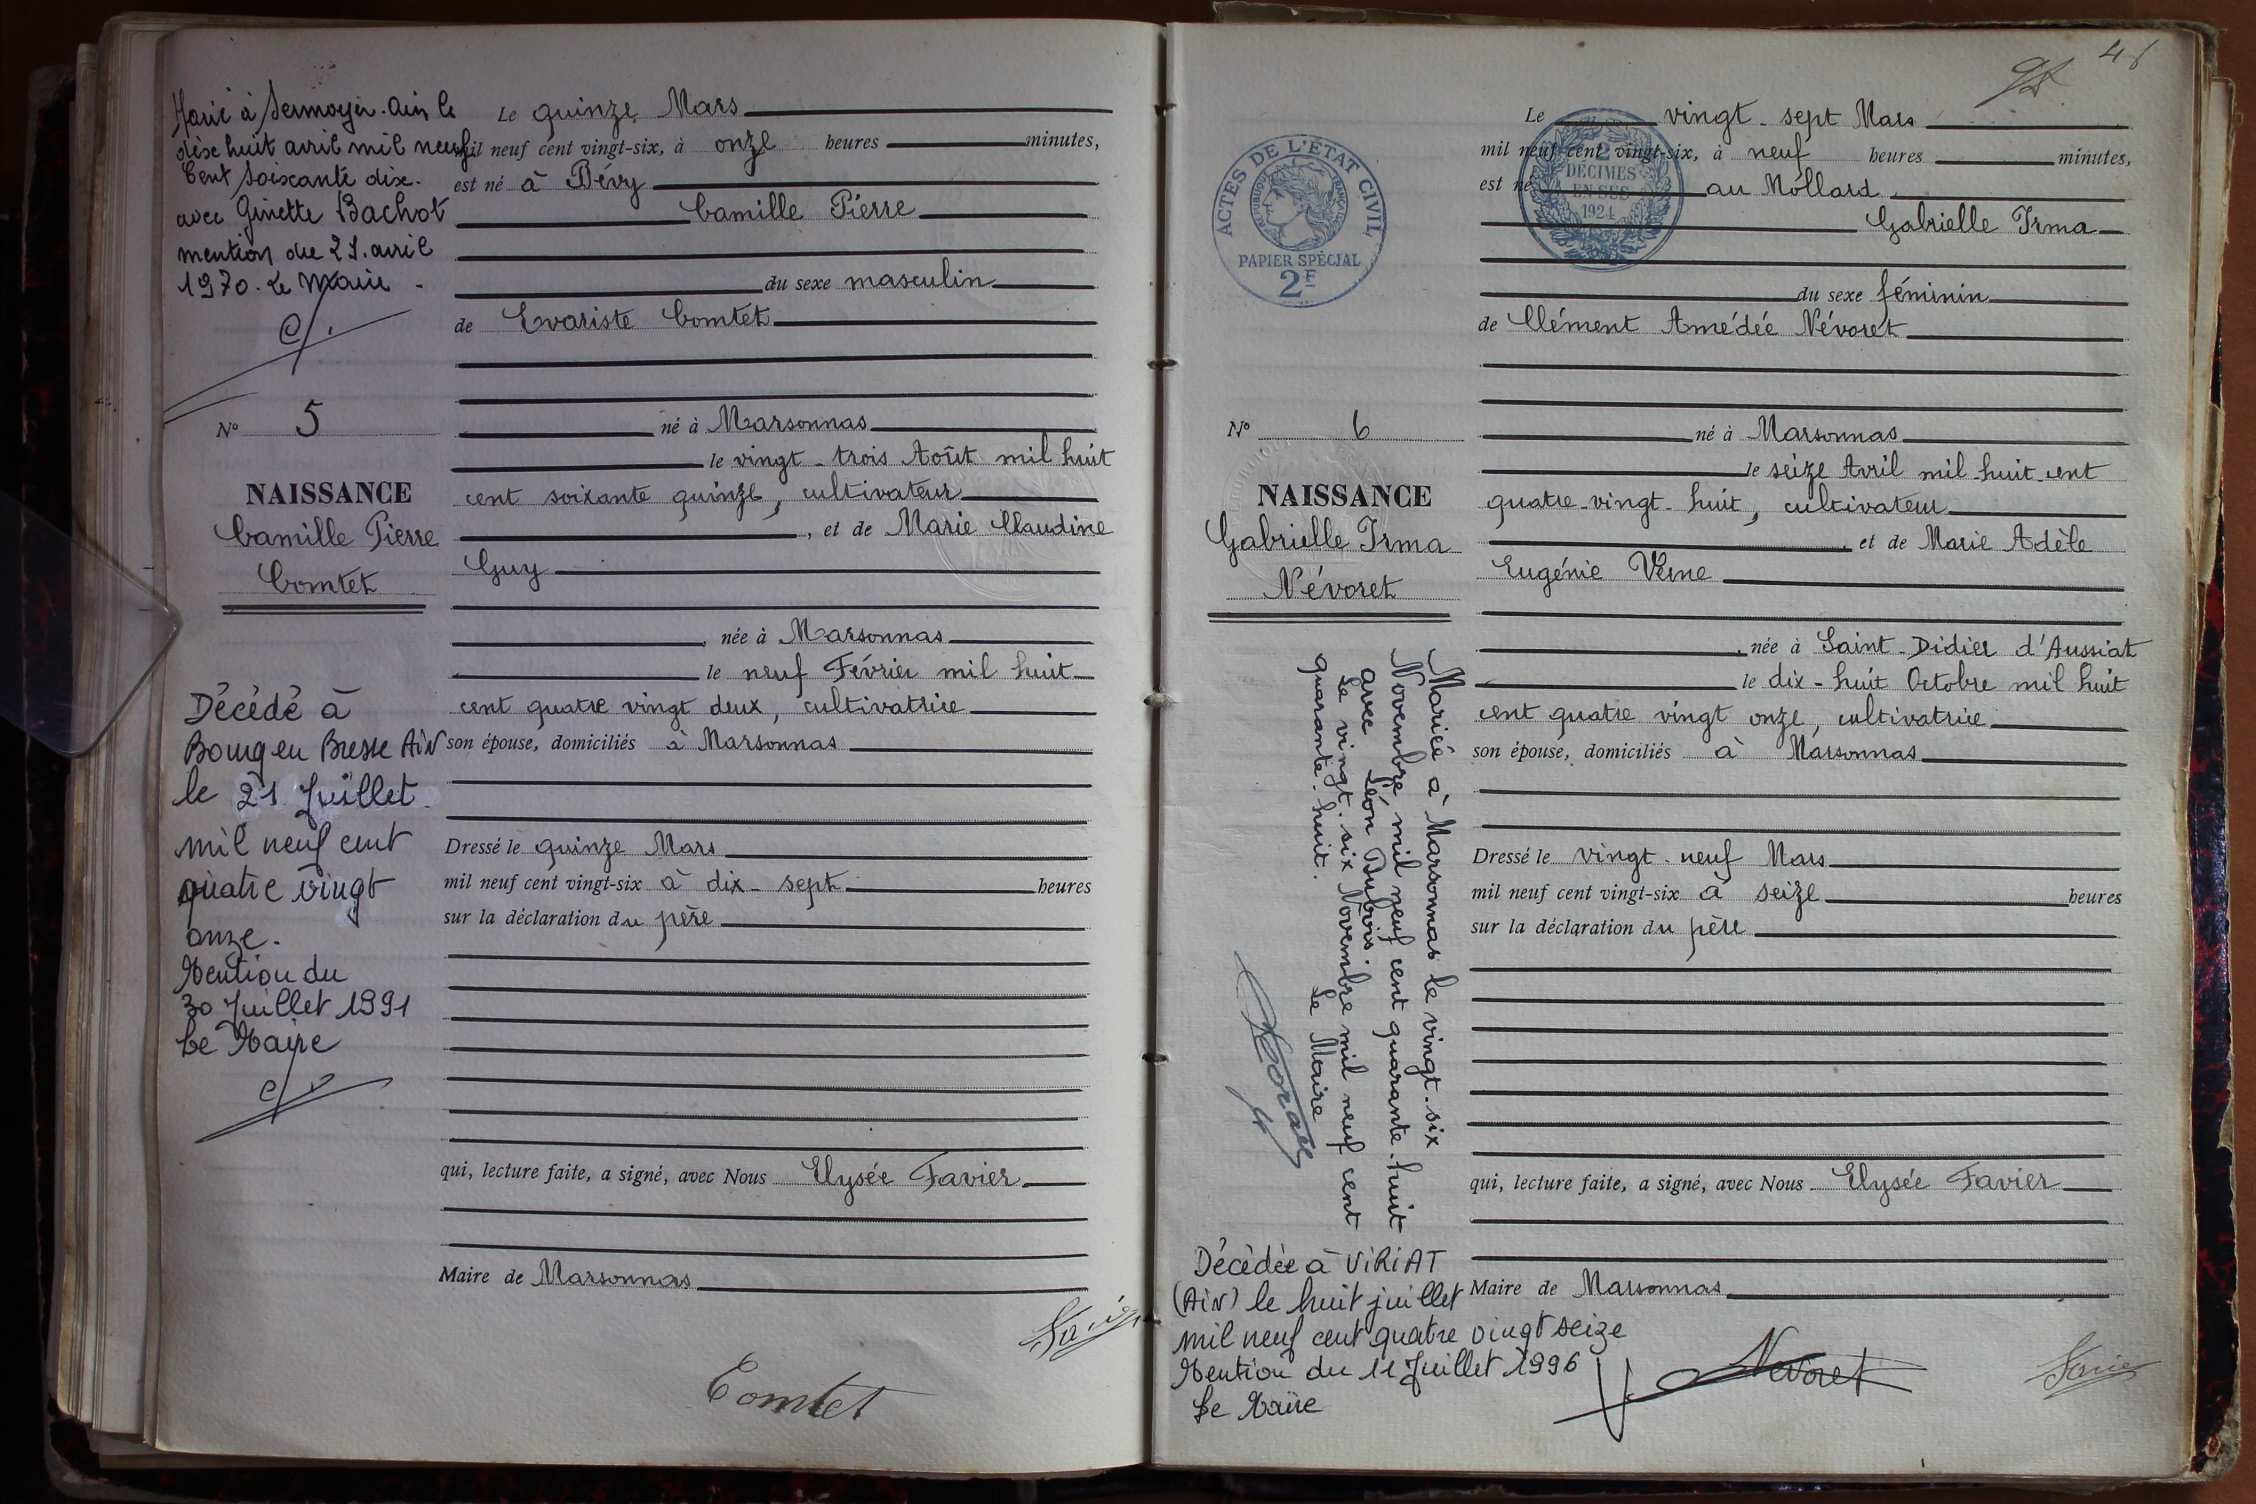 Marié à Sermoyer. Ain le
dixe huit avril mil neuf
Cent Soixante dix.
avec Ginette Bachot
mention du 21. avril
1970. Le Maire
N° 5
NAISSANCE
Camille Pierre
Comtet
Décédé à
Bourg en Bresse AiN
le 21 Juillet
mil neuf cent
quatre vingt
onze.
Mention du
30 Juillet 1991
Le Maire
Le quinze Mars
mil neuf cent vingt-six, à onze heures minutes,
est né à Bévy
Camille Pierre
du sexe masculin
de Evariste Comtet
né à Marsonnas
le vingt-trois Août mil huit
cent soixante quinze, cultivateur
, et de Marie Claudine
Guy
, née à Marsonnas
le neuf Février mil huit
cent quatre vingt deux, cultivatrice
son épouse, domiciliés à Marsonnas
Dressé le quinze Mars
mil neuf cent vingt-six à dix-sept heures
sur la déclaration du père
qui, lecture faite, a signé, avec Nous Elysée Favier
Maire de Marsonnas
Comtet
ACTES DE L'ÉTAT CIVIL
RÉPUBLIQUE FRANÇAISE
PAPIER SPÉCIAL
2F
N° 6
NAISSANCE
Gabrielle Irma
Névoret
Mariée à Marsonnas le vingt-six
Novembre mil neuf cent quarante-huit
avec Léon Dubois.
Le vingt-six Novembre mil neuf cent
quarante-huit. Le Maire
Décédée à ViRiAT
(AiN) le huit juillet
mil neuf cent quatre vingt seize
Mention du 11 Juillet 1996
Le Maire
2
DÉCIMES
EN SUS
1924
Le vingt-sept Mars
mil neuf cent vingt-six, à neuf heures minutes,
est né au Mollard
Gabrielle Irma
du sexe féminin
de Clément Amédée Névoret
né à Marsonnas
le seize Avril mil-huit-cent
quatre-vingt-huit, cultivateur
, et de Marie Adèle
Eugénie Verne
, née à Saint-Didier d'Aussiat
le dix-huit Octobre mil huit
cent quatre vingt onze, cultivatrice
son épouse, domiciliés à Marsonnas
Dressé le vingt-neuf Mars
mil neuf cent vingt-six à seize heures
sur la déclaration du père
qui, lecture faite, a signé, avec Nous Elysée Favier
Maire de Marsonnas
Nevoret